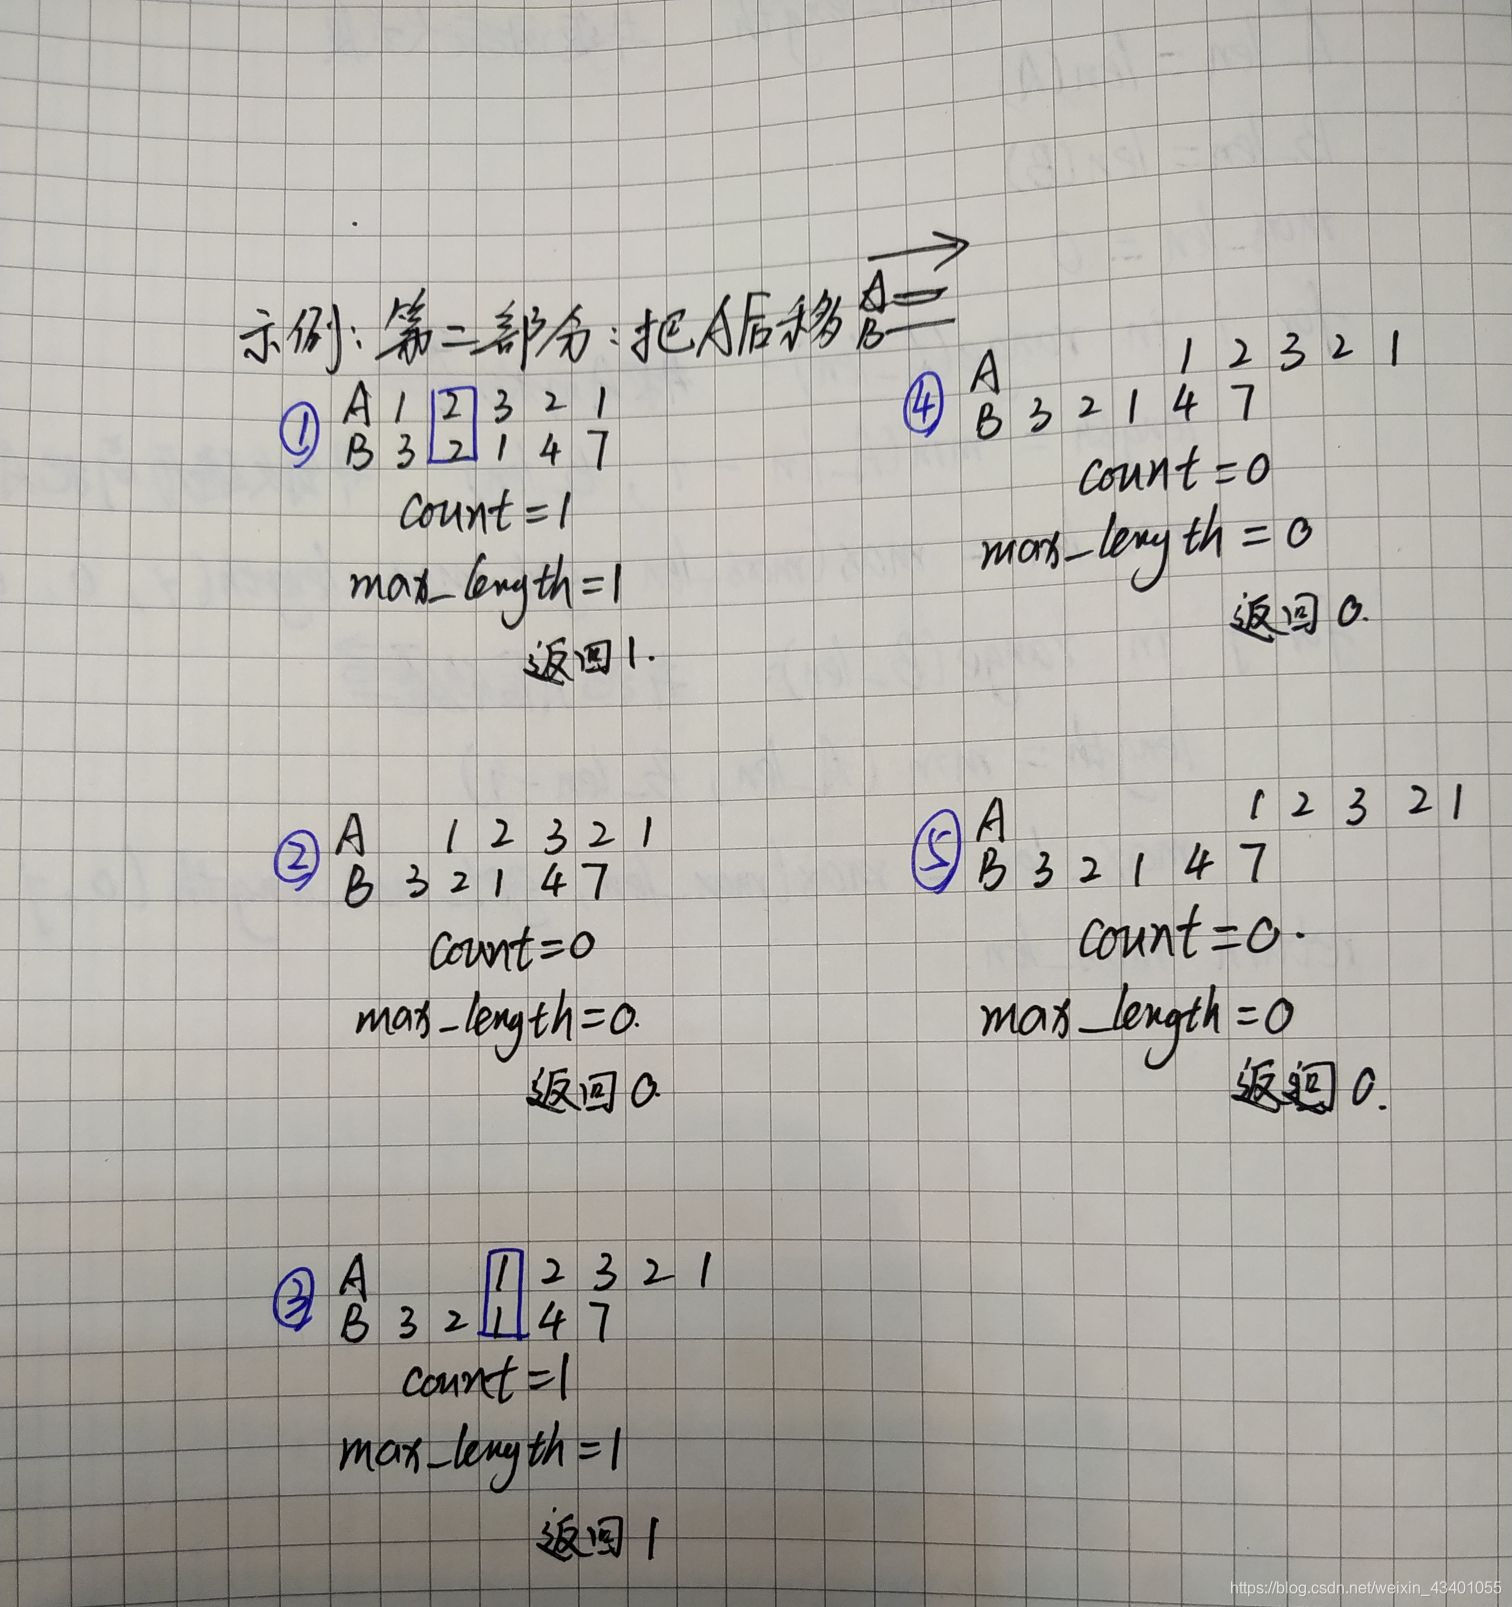 示例:第二部分:把A后移 A
B
① A 1 2 3 2 1
B 3 2 1 4 7
count=1
max_length=1
返回1.
② A 1 2 3 2 1
B 3 2 1 4 7
count=0
max_length=0.
返回0.
③ A 1 2 3 2 1
B 3 2 1 4 7
count=1
max_length=1
返回1
④ A 1 2 3 2 1
B 3 2 1 4 7
count=0
max_length=0
返回0.
⑤ A 1 2 3 2 1
B 3 2 1 4 7
count=0.
max_length=0
返回0.
https://blog.csdn.net/weixin_43401055